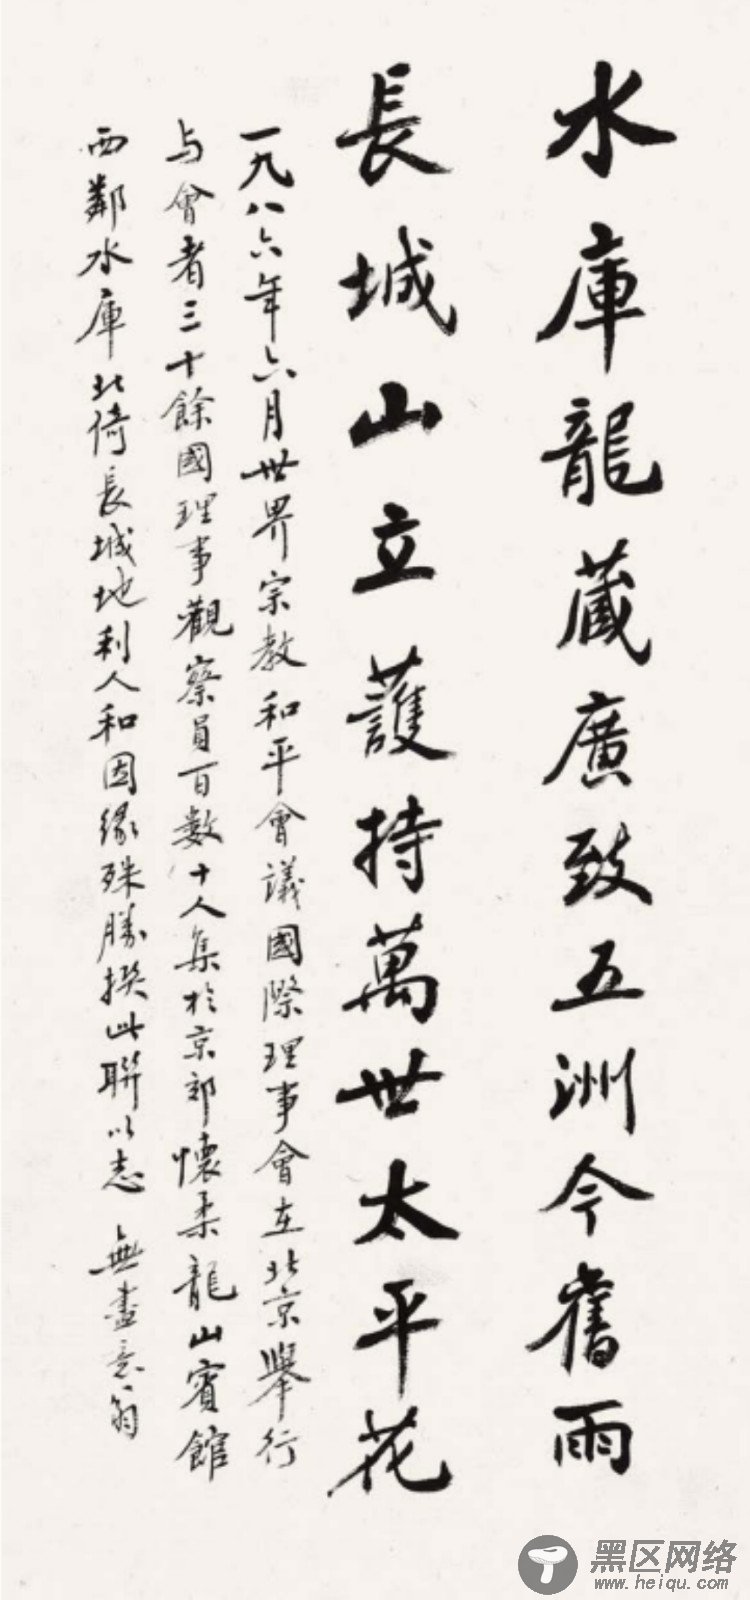 水庫龍藏廣致五洲今舊雨
長城山立護持萬世太平花
一九八六年六月世界宗教和平會議國際理事會在北京舉行
与會者三十餘國理事觀察員百數十人集於京郊懷柔龍山賓館
西鄰水庫北倚長城地利人和因緣殊勝撰此聯以志 無盡意翁
黑区网络
www.heiqu.com